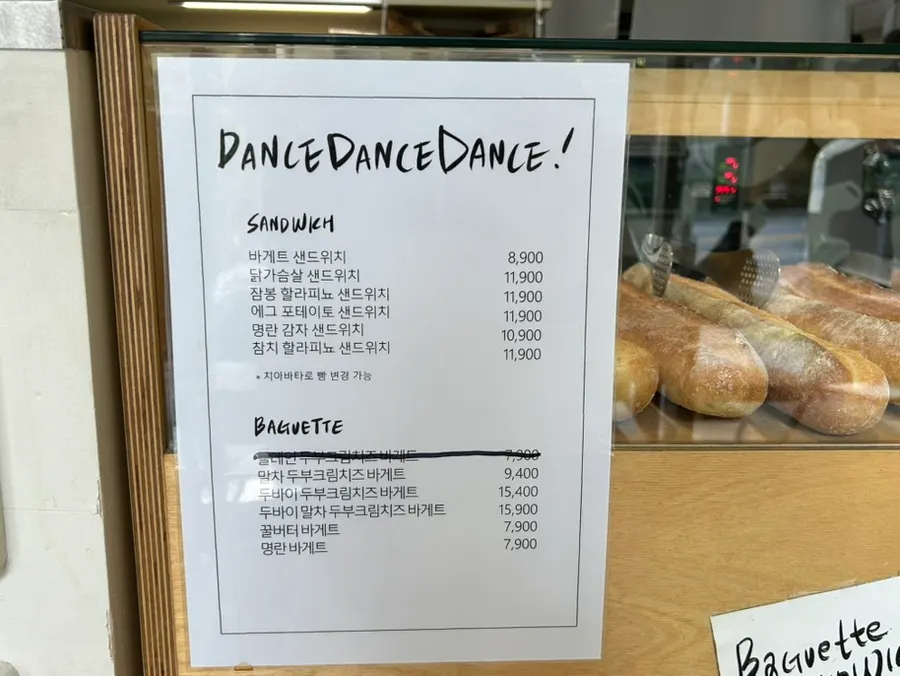 DANCEDANCEDANCE.!
SANDWICH
바게트 샌드위치 8,900
닭가슴살 샌드위치 11,900
잠봉 할라피뇨 샌드위치 11,900
에그 포테이토 샌드위치 11,900
명란 감자 샌드위치 10,900
참치 할라피뇨 샌드위치 11,900
* 치아바타로 빵 변경 가능
BAGUETTE
플레인 두부크림치즈 바게트 7,900
말차 두부크림치즈 바게트 9,400
두바이 두부크림치즈 바게트 15,400
두바이 말차 두부크림치즈 바게트 15,900
꿀버터 바게트 7,900
명란 바게트 7,900
Baguette